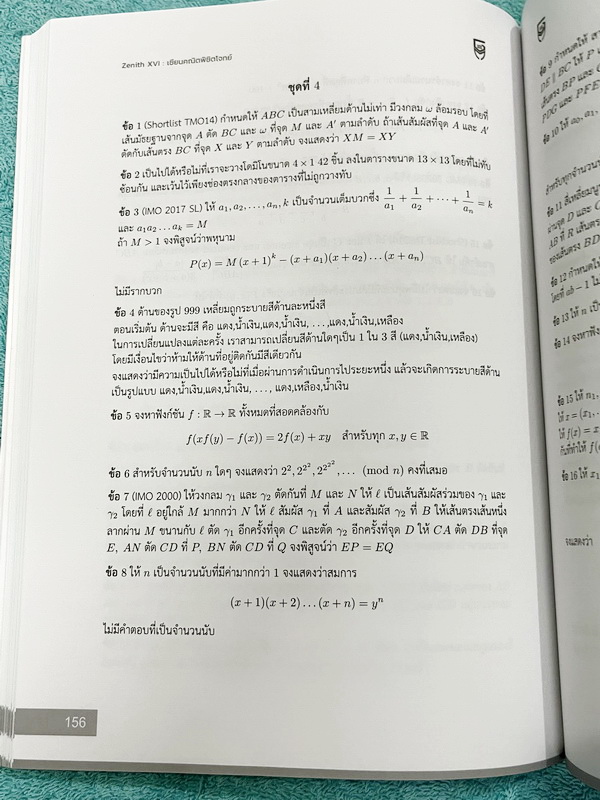 Zenith XVI : เซียนคณิตพิชิตโจทย์
ชุดที่ 4
ข้อ 1 (Shortlist TMO14) กำหนดให้ ABC เป็นสามเหลี่ยมด้านไม่เท่า มีวงกลม ω ล้อมรอบ โดยที่
เส้นมัธยฐานจากจุด A ตัด BC และ ω ที่จุด M และ A′ ตามลำดับ ถ้าเส้นสัมผัสที่จุด A และ A′
ตัดกับเส้นตรง BC ที่จุด X และ Y ตามลำดับ จงแสดงว่า XM = XY
ข้อ 2 เป็นไปได้หรือไม่ที่เราจะวางโดมิโนขนาด 4 × 1 42 ชิ้น ลงในตารางขนาด 13 × 13 โดยที่ไม่ทับ
ซ้อนกัน และเว้นไว้เพียงช่องตรงกลางของตารางที่ไม่ถูกวางทับ
ข้อ 3 (IMO 2017 SL) ให้ a₁, a₂, . . . , aₙ, k เป็นจำนวนเต็มบวกซึ่ง 1/a₁ + 1/a₂ + · · · + 1/aₙ = k
และ a₁a₂ . . . aₖ = M
ถ้า M > 1 จงพิสูจน์ว่าพหุนาม
P(x) = M(x + 1)ᵏ − (x + a₁)(x + a₂) . . . (x + aₙ)
ไม่มีรากบวก
ข้อ 4 ด้านของรูป 999 เหลี่ยมถูกระบายสีด้านละหนึ่งสี
ตอนเริ่มต้น ด้านจะมีสี คือ แดง,น้ำเงิน,แดง,น้ำเงิน, . . . ,แดง,น้ำเงิน,เหลือง
ในการเปลี่ยนแปลงแต่ละครั้ง เราสามารถเปลี่ยนสีด้านใดๆเป็น 1 ใน 3 สี (แดง,น้ำเงิน,เหลือง)
โดยมีเงื่อนไขว่าห้ามให้ด้านที่อยู่ติดกันมีสีเดียวกัน
จงแสดงว่ามีความเป็นไปได้หรือไม่ที่เมื่อผ่านการดำเนินการไประยะหนึ่ง แล้วจะเกิดการระบายสีด้าน
เป็นรูปแบบ แดง,น้ำเงิน,แดง,น้ำเงิน, . . . , แดง,เหลือง,น้ำเงิน
ข้อ 5 จงหาฟังก์ชัน f : ℝ → ℝ ทั้งหมดที่สอดคล้องกับ
f(xf(y) − f(x)) = 2f(x) + xy สำหรับทุก x, y ∈ ℝ
ข้อ 6 สำหรับจำนวนนับ n ใดๆ จงแสดงว่า 2^2, 2^{2^2}, 2^{2^{2^2}}, . . . (mod n) คงที่เสมอ
ข้อ 7 (IMO 2000) ให้วงกลม γ₁ และ γ₂ ตัดกันที่ M และ N ให้ ℓ เป็นเส้นสัมผัสร่วมของ γ₁ และ
γ₂ โดยที่ ℓ อยู่ใกล้ M มากกว่า N ให้ ℓ สัมผัส γ₁ ที่ A และสัมผัส γ₂ ที่ B ให้เส้นตรงเส้นหนึ่ง
ลากผ่าน M ขนานกับ ℓ ตัด γ₁ อีกครั้งที่จุด C และตัด γ₂ อีกครั้งที่จุด D ให้ CA ตัด DB ที่จุด
E, AN ตัด CD ที่ P, BN ตัด CD ที่ Q จงพิสูจน์ว่า EP = EQ
ข้อ 8 ให้ n เป็นจำนวนนับที่มีค่ามากกว่า 1 จงแสดงว่าสมการ
(x + 1)(x + 2) . . . (x + n) = yⁿ
ไม่มีคำตอบที่เป็นจำนวนนับ
156
ข้อ 9 กำหนดให้
DE ∥ BC ให้ P
เส้นตรง BP และ
PDG และ PFE
ข้อ 10 ให้ a₀, a₁,
สำหรับทุกจำนวน
ข้อ 11 สี่เหลี่ยม
ผ่านจุด D และ
AB ที่ R เส้นตรง
ของเส้นตรง BD
ข้อ 12 กำหนดให้
โดยที่ ab − 1
ข้อ 13 ให้ n
ข้อ 14 จงหา
ข้อ 15 ให้ n₁,
ให้ x = (x₁,
ให้ f(x) =
กันที่ทำให้ f(
ข้อ 16 ให้ x₁
จงแสดงว่า